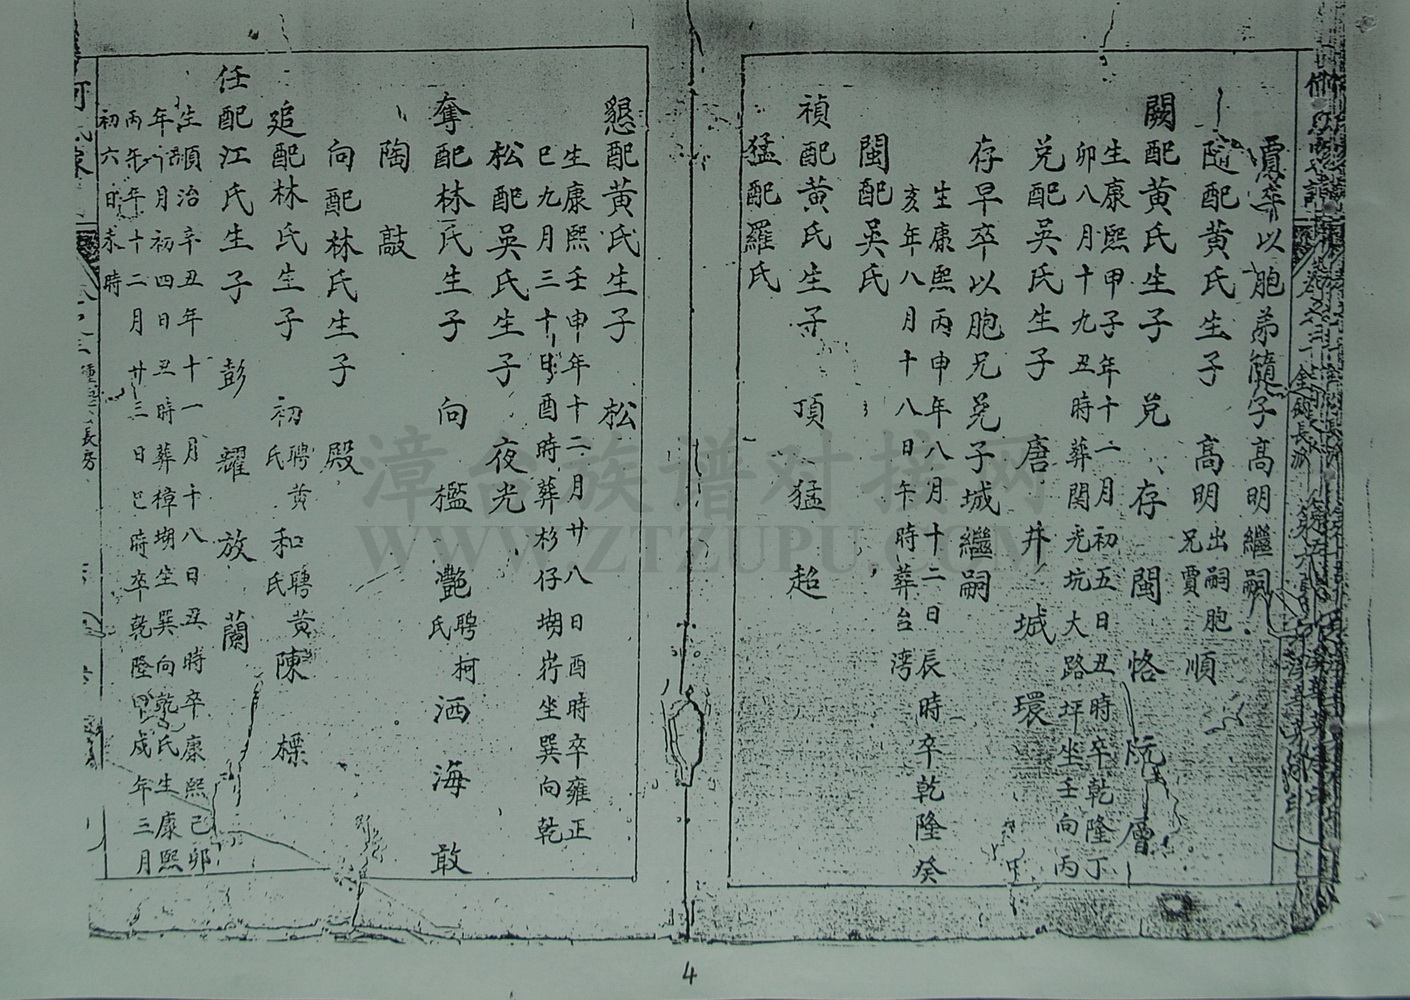 賈卒以胞弟隨子高明繼嗣
隨配黃氏生子 高明出嗣胞兄賈 順
闕配黃氏生子 兌 存 閩 恪 阮 層
生康熙甲子年十一月初五日丑時卒乾隆丁
卯八月十九丑時葬関光坑大路坪坐壬向丙
兌配吳氏生子 唐 井 城 環
存早卒以胞兄兌子城繼嗣
生康熙丙申年八月十二日辰時卒乾隆癸
亥年八月十八日午時葬台湾
閩配吳氏
禎配黃氏生子 頂 猛 超
猛配羅氏
懇配黃氏生子 松
生康熙壬申年十二月廿八日酉時卒雍正
巳九月三十日酉時葬杉仔坳坐巽向乾
松配吳氏生子 夜光
奪配林氏生子 向 檻 艷聘柯氏 洒 海 敢
陶 敲
向配林氏生子 殿
追配林氏生子 初聘黄氏 和聘黄氏 陳 標
任配江氏生子 彭 耀 放 蘭
生順治辛丑年十一月十八日丑時卒康熙己卯
年月初四日丑時葬樟坳坐巽向乾氏生康熙
丙午年十二月廿三日巳時卒乾隆甲戍年三月
初六日未時
漳台族谱对接网
WWW.ZTZUPU.COM
4